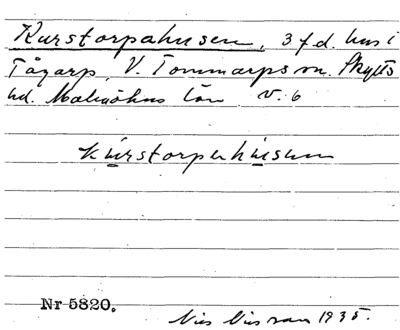 Kurstorpahusen, 3 f.d. hus i
Tågarp, V. Tommarps sn. Skytts
hd. Malmöhus län. V. 6
kurstorpahusen
Nr 5820.
Nils Nilsson 1935.